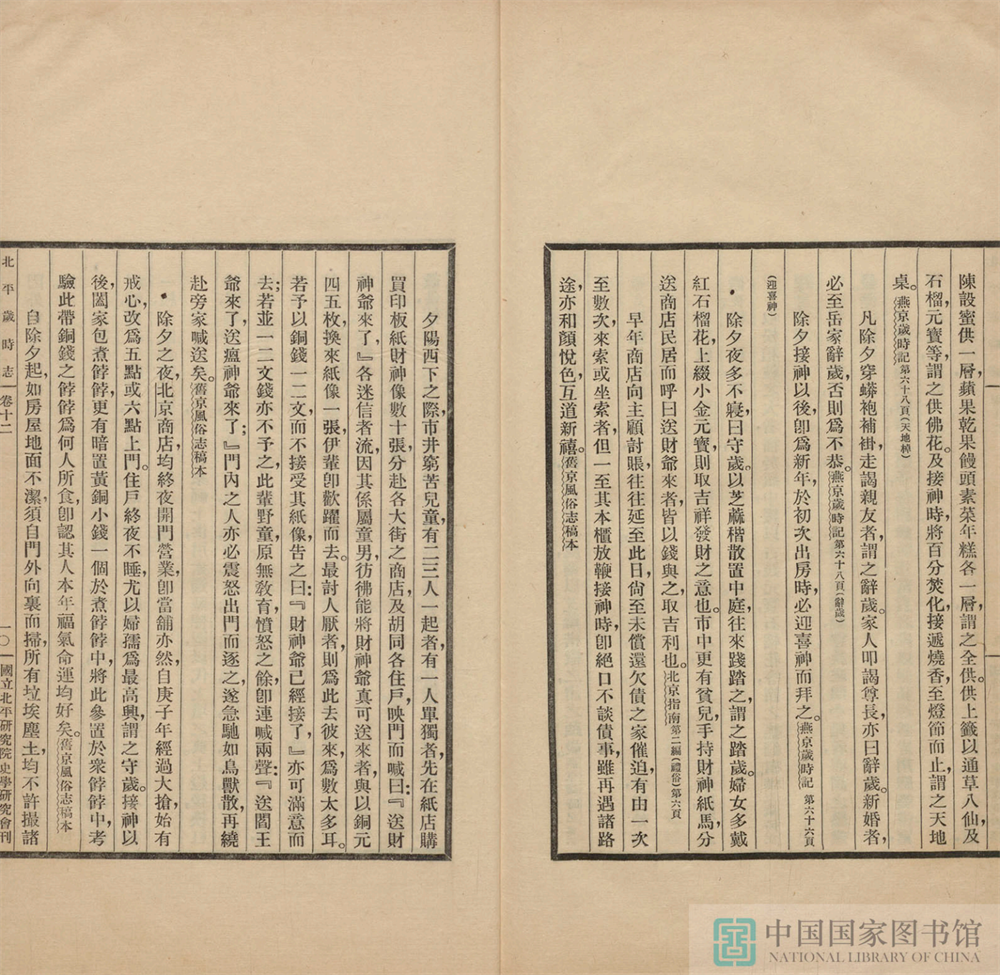 陳設蜜供一層蘋果乾果饅頭素菜年糕各一層謂之全供供上籤以通草八仙及
石榴元寶等謂之供佛花及接神時將百分焚化接遞燒香至燈節而止謂之天地
桌。燕京歲時記第六十八頁(天地棹)
凡除夕穿蟒袍補褂走謁親友者謂之辭歲。家人叩謁尊長亦曰辭歲。新婚者,
必至岳家辭歲否則爲不恭。燕京歲時記第六十八頁(辭歲)
除夕接神以後,卽爲新年,於初次出房時,必迎喜神而拜之。燕京歲時記 第六十六頁
(迎喜神)
除夕夜多不寢,曰守歲。以芝蔴楷散置中庭,往來踐踏之,謂之踏歲。婦女多戴
紅石榴花,上綴小金元寶,則取吉祥發財之意也。市中更有貧兒,手持財神紙馬,分
送商店民居而呼曰送財爺來者,皆以錢與之,取吉利也。北京指南第二編(禮俗)第六頁
早年商店向主顧討賬,往往延至此日,尙至未償還欠債之家催迫,有由一次
至數次來索或坐索者,但一至其本櫃放鞭接神時,卽絕口不談債事,雖再遇諸路
途,亦和顏悅色互道新禧。舊京風俗志稿本
夕陽西下之際,市井窮苦兒童,有二三人一起者,有一人單獨者,先在紙店購
買印板紙財神像數十張,分赴各大街之商店,及胡同各住戶,映門而喊曰:『送財
神爺來了,』各迷信者流,因其係屬童男,彷彿能將財神爺真可送來者,與以銅元
四五枚,換來紙像一張,伊輩卽歡躍而去。最討人厭者,則爲此去彼來,爲數太多耳。
若予以銅錢一二文,而不接受其紙像,告之曰:『財神爺已經接了,』亦可滿意而
去;若並一二文錢亦不予之,此輩野童,原無教育,憤怒之餘,卽連喊兩聲:『送閻王
爺來了,送瘟神爺來了;』門內之人,亦必震怒出門而逐之,遂急馳如鳥獸散,再繞
赴旁家喊送矣。舊京風俗志稿本
除夕之夜,北京商店,均終夜開門營業,卽當舖亦然,自庚子年經過大搶,始有
戒心,改爲五點或六點上門。住戶終夜不睡,尤以婦孺爲最高興,謂之守歲。接神以
後,闔家包煮餑餑,更有暗置黃銅小錢一個於煮餑餑中,將此參置於衆餑餑中,考
驗此帶銅錢之餑餑爲何人所食,卽認其人本年福氣命運均好矣。舊京風俗志稿本
自除夕起,如房屋地面不潔,須自門外向裏而掃,所有垃埃塵土,均不許撮諸
北平歲時志 卷十二 一〇一 國立北平研究院史學研究會刊
中国国家图书馆
NATIONAL LIBRARY OF CHINA